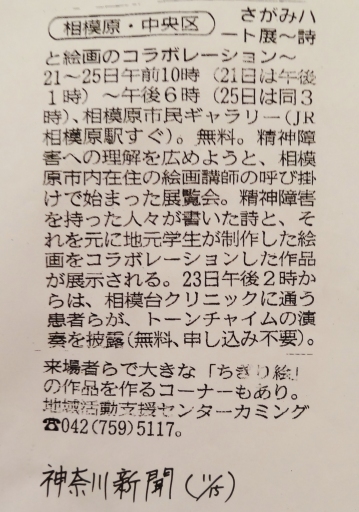 相模原・中央区 さがみハ
ート展〜詩
と絵画のコラボレーション〜
21〜25日午前10時（21日は午後
1時）〜午後6時（25日は同3
時）、相模原市民ギャラリー（JR
相模原駅すぐ）。無料。精神障
害への理解を広めようと、相模
原市内在住の絵画講師の呼び掛
けで始まった展覧会。精神障害
を持った人々が書いた詩と、そ
れを元に地元学生が制作した絵
画をコラボレーションした作品
が展示される。23日午後2時か
らは、相模台クリニックに通う
患者らが、トーンチャイムの演
奏を披露（無料、申し込み不要）。
来場者らで大きな「ちぎり絵」
の作品を作るコーナーもあり。
地域活動支援センターカミング
☎042（759）5117。
神奈川新聞（11/15）